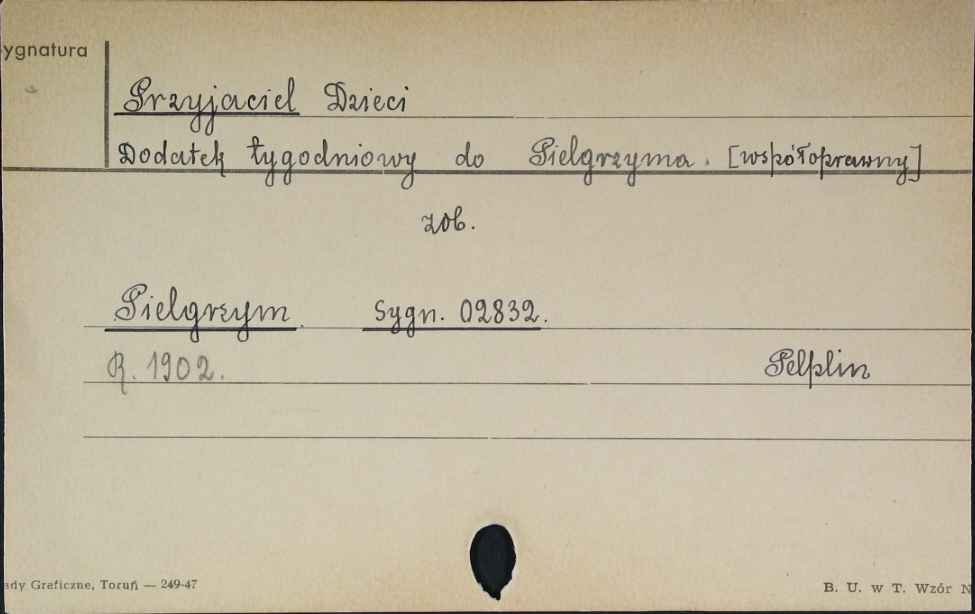 ygnatura
Przyjaciel Dzieci
Dodatek tygodniowy do Pielgrzyma. [współoprawny]
zob.
Pielgrzym. Sygn. 02832.
R. 1902.
Pelplin
ady Graficzne, Toruń — 249-47
B. U. w T. Wzór N